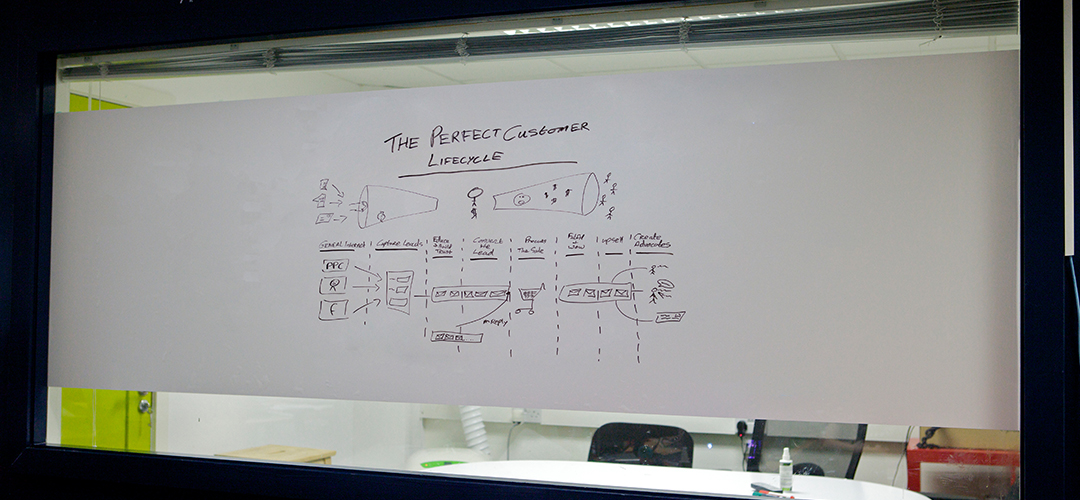 THE PERFECT CUSTOMER
LIFECYCLE
GENERAL Interest
Capture Leads
Educate
& Build
Trust
Convert
the
Lead
Process
The Sale
Fulfil
+
Wow
Upsell
Create
Advocates
PPC
F
no Reply